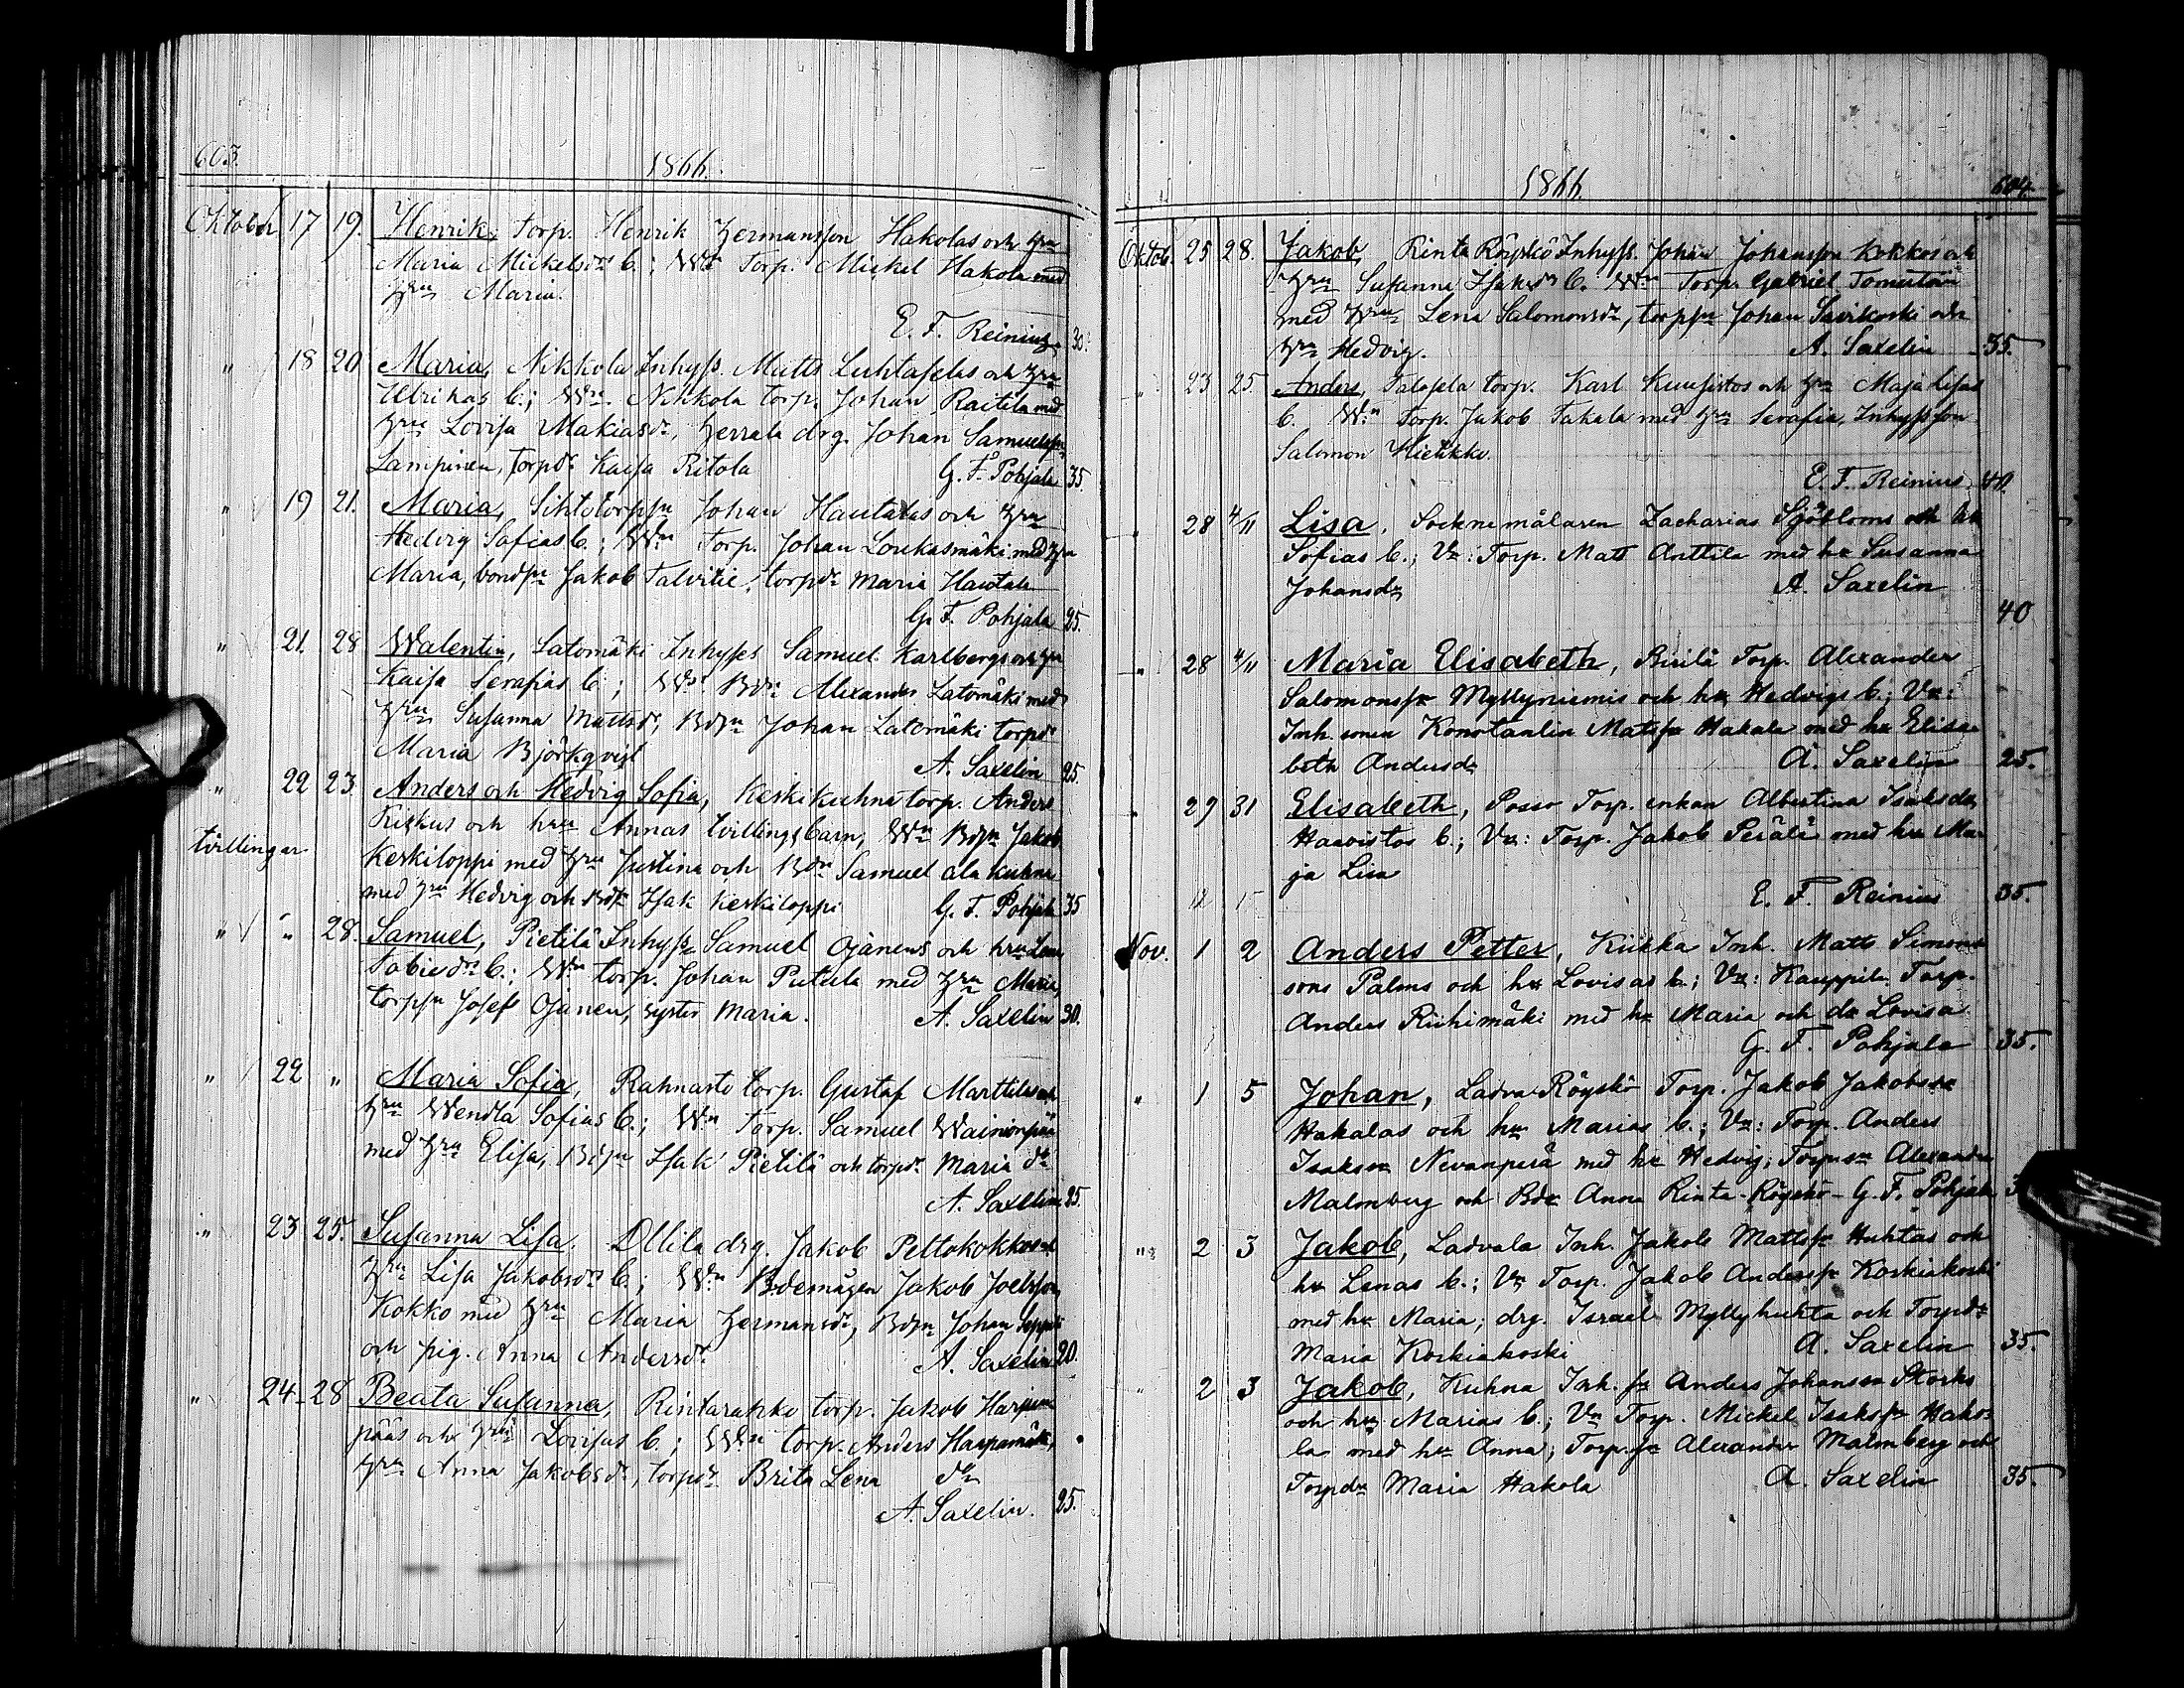 603.
1866.
Oktober 17 19. Henrik, torp. Henrik Hermansson Hakolas och hru
Maria Mickelsdrs b.; Wn Torp. Mickel Hakola med
hru Maria.
E. F. Reinius 30.
" 18 20 Maria, Nikkola Inhyss. Matts Luhtaselas och hru
Ulrikas b.; Wn. Nikkola torp. Johan Raitila med
hru Lovisa Makiasdr, Herrala drg. Johan Samuelsson
Lampinen, torpdr Kaisa Ritola G. F. Pohjala 35.
" 19 21. Maria, Sihtotorpsn Johan Hautalas och hru
Hedvig Sofias b.; Wn Torp. Johan Loukasmäki med hru
Maria, bondsn Jakob Talvitie, torpdr Maria Hautala
G. F. Pohjala 25.
" 21. 28 Walentin, Latomäki Inhyses Samuel Karlbergs och hru
Kaisa Serafias b.; Wn Bdn Alexander Latomäki med
hru Susanna Mattsdr, Bdsn Johan Latomäki torpdr
Maria Björkqvist A. Saxelin 25.
" 22 23. Anders och Hedvig Sofia, Keskikuhna torp. Anders
Kiskus och hru Annas tvillingsbarn, Wn Bdsn Jakob
tvillingar
Keskiloppi med hru Justina och Bdn Samuel Ala Kuhna
med hru Hedvig och Bdsn Isak Keskiloppi G. F. Pohjala 35
" " 28. Samuel, Pietilä Inhyss Samuel Ojanens och hru Lena
Tobiesdrs b.; Wn torp. Johan Pietila med hru Maria,
torpsn Josef Ojanen, syster Maria. A. Saxelin 30.
" 22 " Maria Sofia, Rahnasto torp. Gustaf Marttilas och
hru Wendla Sofias b.; Wn Torp. Samuel Wainionpää
med hru Elisa, Bdsn Isak Pietilä och torpdr Maria do
A. Saxelin 25.
" 23 25. Susanna Lisa. Ollila drg. Jakob Peltokokkos och
hru Lisa Jakobsdrs b.; Wn Bdemågen Jakob Joelsson
Kokko med hru Maria Hermansdr, Bdsn Johan Seppälä
och pig. Anna Andersdr. A. Saxelin 20.
" 24 28 Beata Susanna, Rintarahko torp. Jakob Harjun
pääs och hru Lovisas b.; Wn torp. Anders Harpamäki,
hru Anna Jakobsdr, torpdr Brita Lena do
A. Saxelin. 25.
1866.
604.
Oktob. 25 28. Jakob, Rinta Röyskö Inhyss. Johan Johansson Kokkos och
hru Susanna Isaksdrs b. Wn Torp. Gabriel
med hru Lena Salomonsdr, torpsn Johan Savikoski och
hru Hedvig. A. Saxelin 35.
" 23 25 Anders, torp. Karl Kuusistos och hru Maja Lisas
b. Wn Torp. Jakob Takala med hru Serafia, Inhyssson
Salomon Hietikko.
E. F. Reinius 40.
" 28 4/11 Lisa, Socknemålaren Zacharias Sjöbloms och hu
Sofias b.; Vn: Torp. Matt Anttila med hu Susanna
Johansdr A. Saxelin
40
" 28 4/11 Maria Elisabeth, Torp. Alexander
Salomonssn Myllyniemis och hu Hedvigs b.; Vn:
Inh. sonen Konstantin Matssn Hakala med hu Elisa-
beth Andersdr A. Saxelin 25.
" 29 31 Elisabeth, Posso Torp. enkan Albertina Isaksdr
Haavistos b.; Vn: Torp. Jakob Perälä med hu Ma-
ja Lisa
E. F. Reinius 35.
Nov. 1 2 Anders Petter, Kiikka Inh. Matts Simons-
sons Palms och hu Lovisas b.; Vn: Kauppila Torp.
Anders Riihimäki med hu Maria och dr Lovisa
G. F. Pohjala 35.
" 1 5 Johan, Ladva-Röyskö Torp. Jakob Jakobsson
Hakalas och hu Marias b.; Vn: Torp. Anders
Isakson Nevanperä med hu Hedvig; Torpson Alexander
Malmberg och Bdr Anna Rinta-Röyskö - G. F. Pohjala 3
" 2 3 Jakob, Ladvala Inh. Jakob Mattssn Huhtas och
hu Lenas b.; Vn Torp. Jakob Anderssn Koskiakoski
med hu Maria; drg. Israel Myllyhuhta och Torpdr
Maria Koskiakoski A. Saxelin 35.
" 2 3 Jakob, Kuhna Inh. sn Anders Johansson Storks
och hu Marias b.; Vn Torp. Mickel Isakssn Hako-
la med hu Anna; Torp. sn Alexander Malmberg och
Torpdr Maria Hakola A. Saxelin 35.